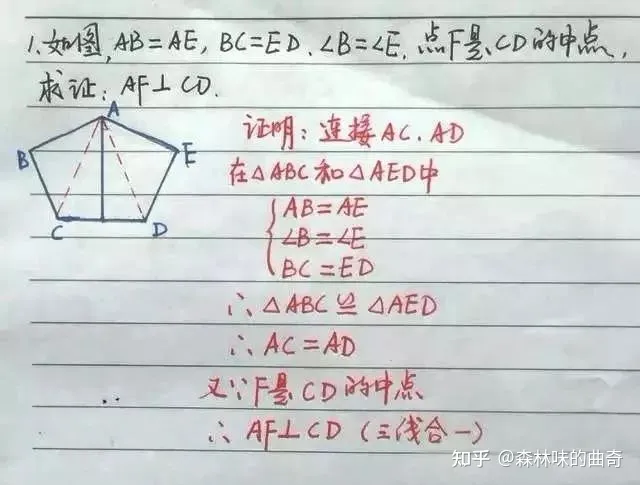 1.如图,AB=AE,BC=ED.∠B=∠E.点F是CD的中点,
求证:AF⊥CD.
A
B
E
C
D
证明:连接AC.AD
在△ABC和△AED中
AB=AE
∠B=∠E
BC=ED
∴△ABC≌△AED
∴AC=AD
又∵F是CD的中点
∴AF⊥CD(三线合一)
知乎 @森林味的曲奇